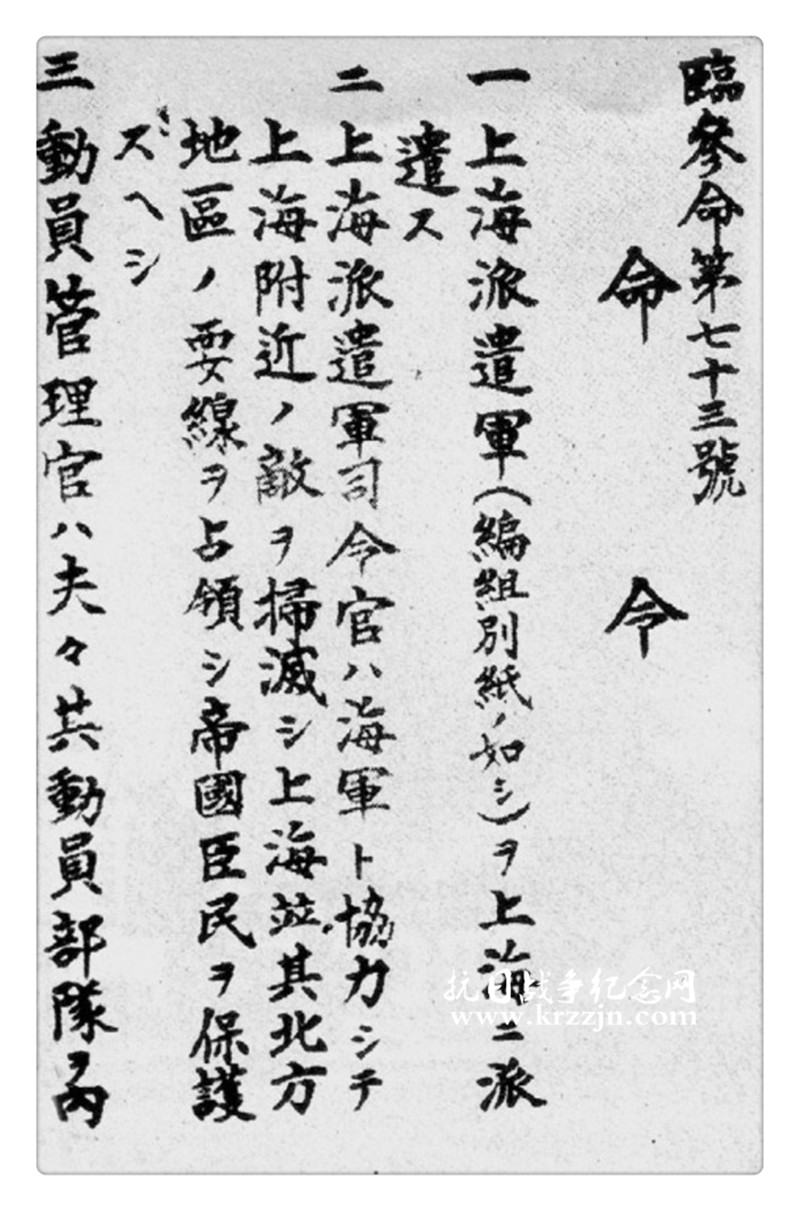 臨參命第七十三號
命令
一 上海派遣軍(編組別紙ノ如シ)ヲ上海ニ派
遣ス
二 上海派遣軍司令官ハ海軍ト協力シテ
上海附近ノ敵ヲ掃滅シ上海並其北方
地區ノ要線ヲ占領シ帝國臣民ヲ保護
スヘシ
三 動員管理官ハ夫々其動員部隊ヲ內
抗日战争纪念网
www.krzzjn.com